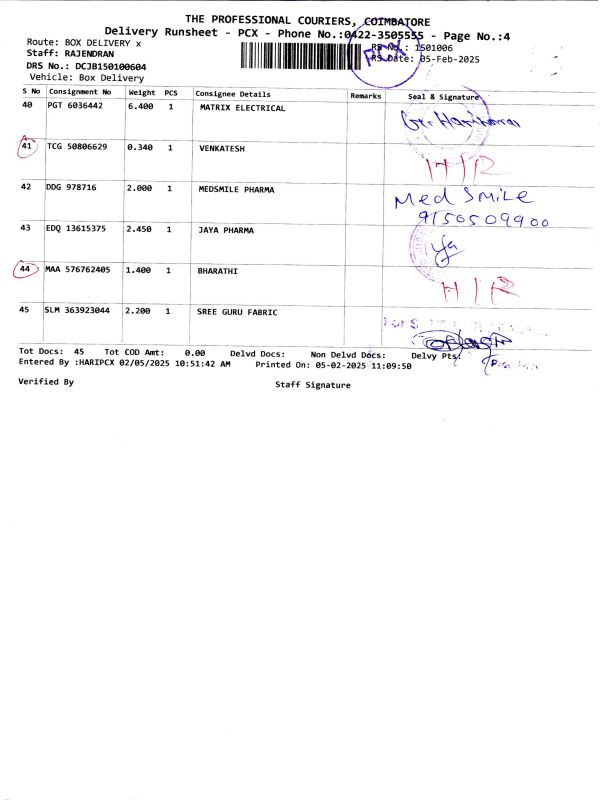 THE PROFESSIONAL COURIERS, COIMBATORE
Delivery Runsheet - PCX - Phone No.:0422-3505555 - Page No.:4
Route: BOX DELIVERY x
RS No.: 1501006
Staff: RAJENDRAN
RS Date: 05-Feb-2025
PCX
DRS No.: DCJB150100604
Vehicle: Box Delivery
S No Consignment No Weight PCS Consignee Details Remarks Seal & Signature
40 PGT 6036442 6.400 1 MATRIX ELECTRICAL
41 TCG 50806629 0.340 1 VENKATESH H/R
42 DDG 978716 2.000 1 MEDSMILE PHARMA Med SMILE
9150509900
43 EDQ 13615375 2.450 1 JAYA PHARMA
44 MAA 576762405 1.400 1 BHARATHI H/R
45 SLM 363923044 2.200 1 SREE GURU FABRIC
Tot Docs: 45 Tot COD Amt: 0.00 Delvd Docs: Non Delvd Docs: Delvy Pts:
Entered By :HARIPCX 02/05/2025 10:51:42 AM Printed On: 05-02-2025 11:09:50
Verified By Staff Signature